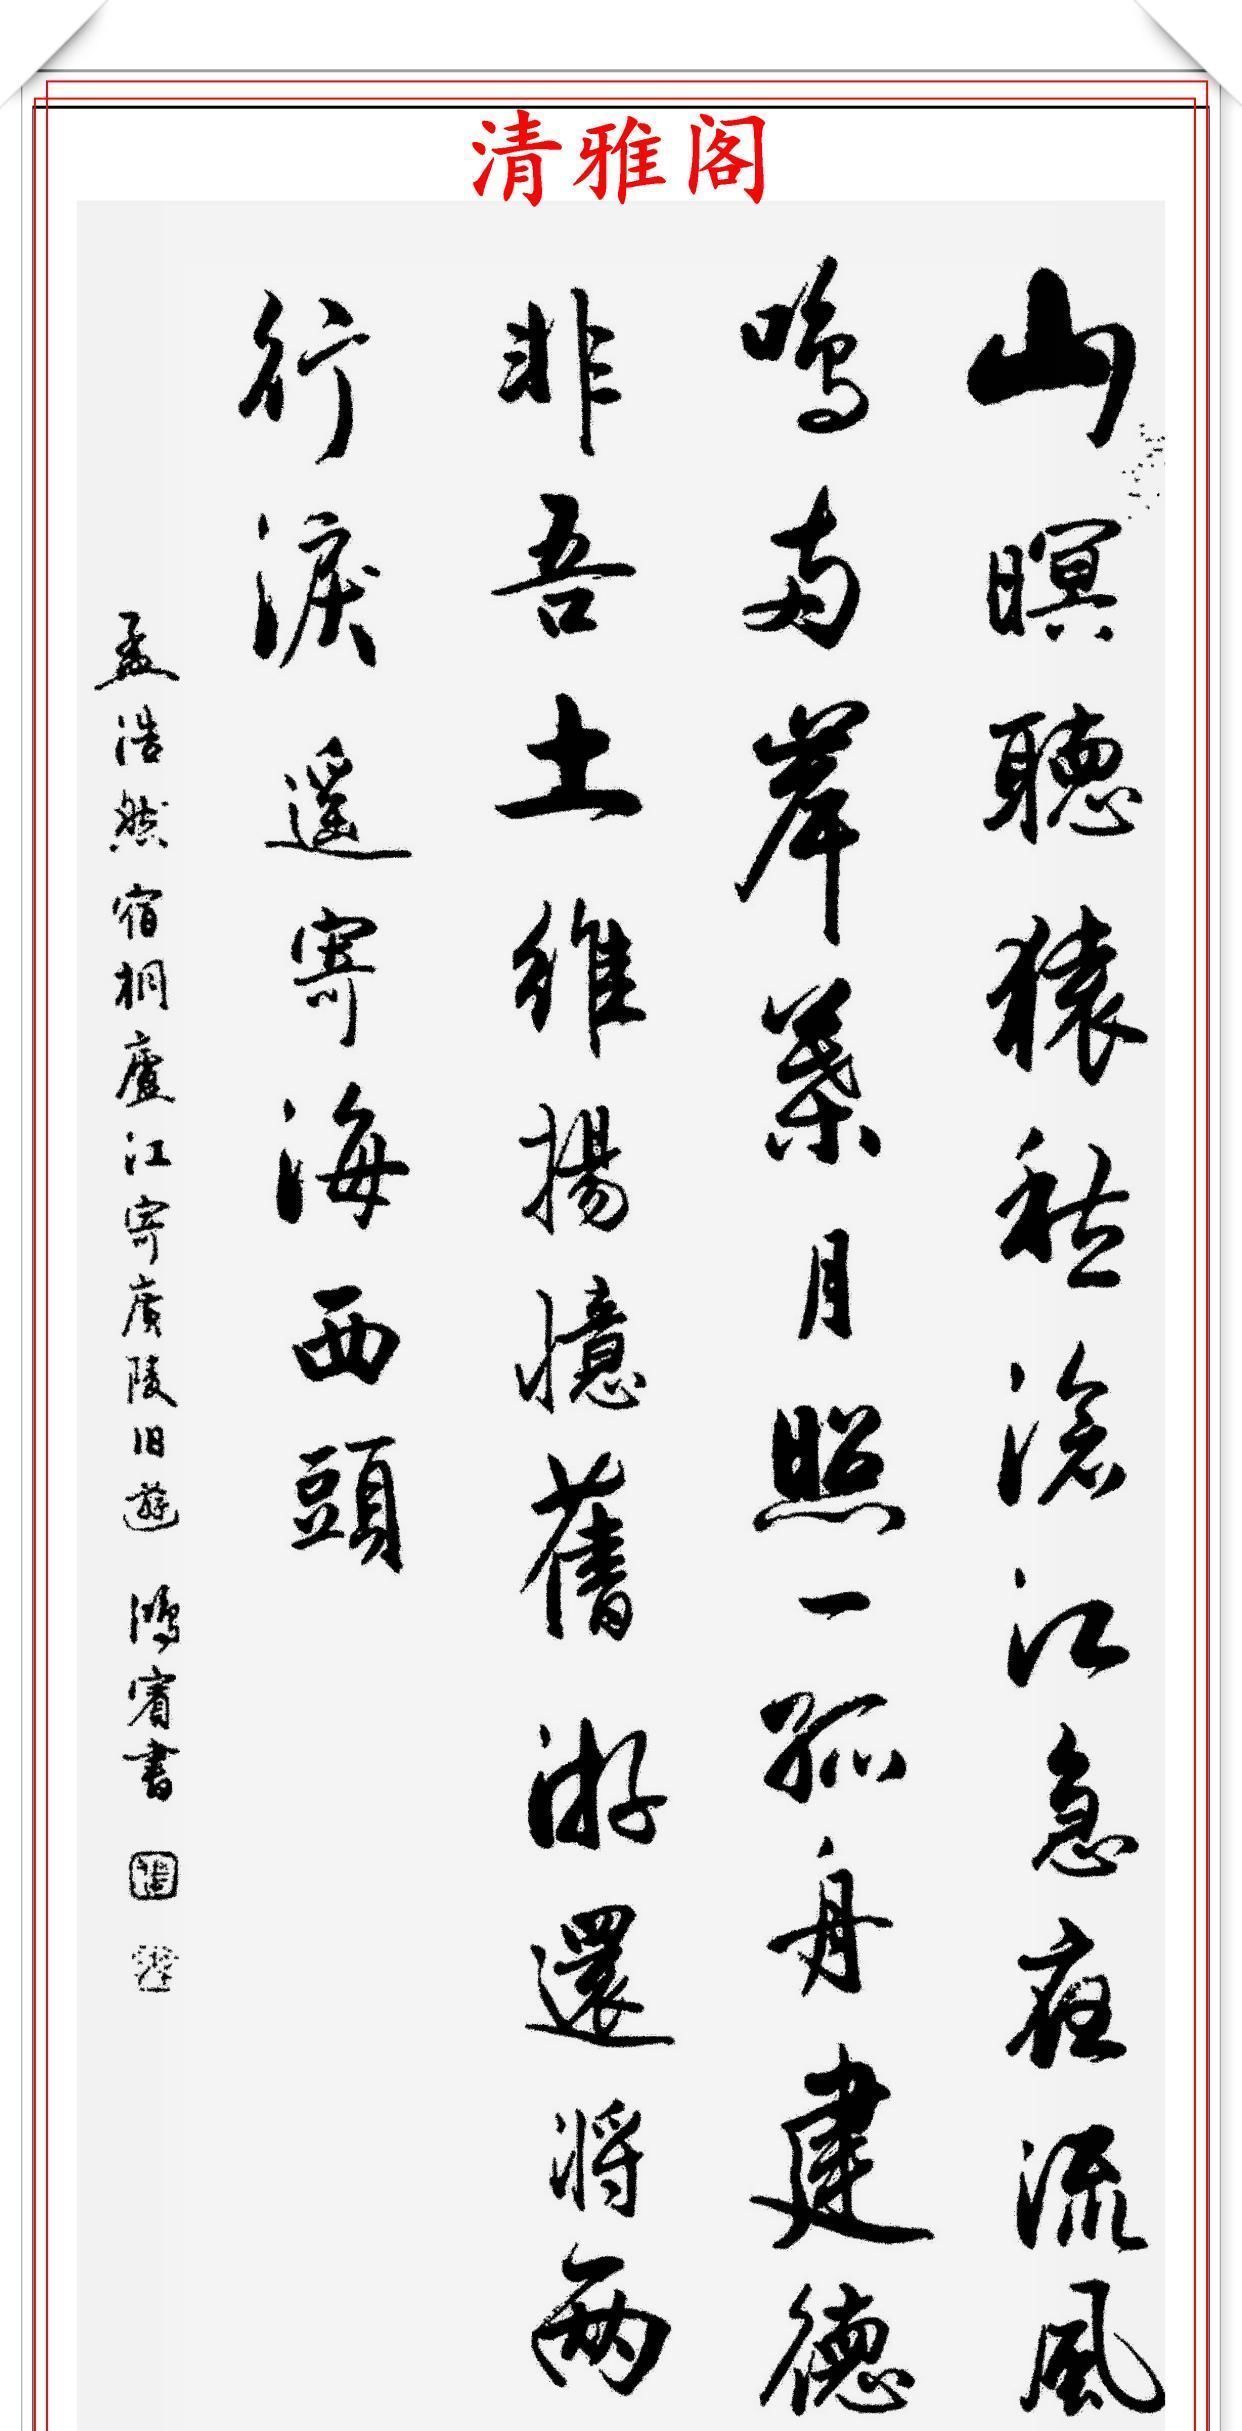 清雅阁
山暝聽猿愁滄江急夜流風
鳴两岸葉月照一孤舟建德
非吾土維揚憶舊游還將兩
行淚遥寄海西頭
孟浩然宿桐廬江寄廣陵旧遊 鴻賓書